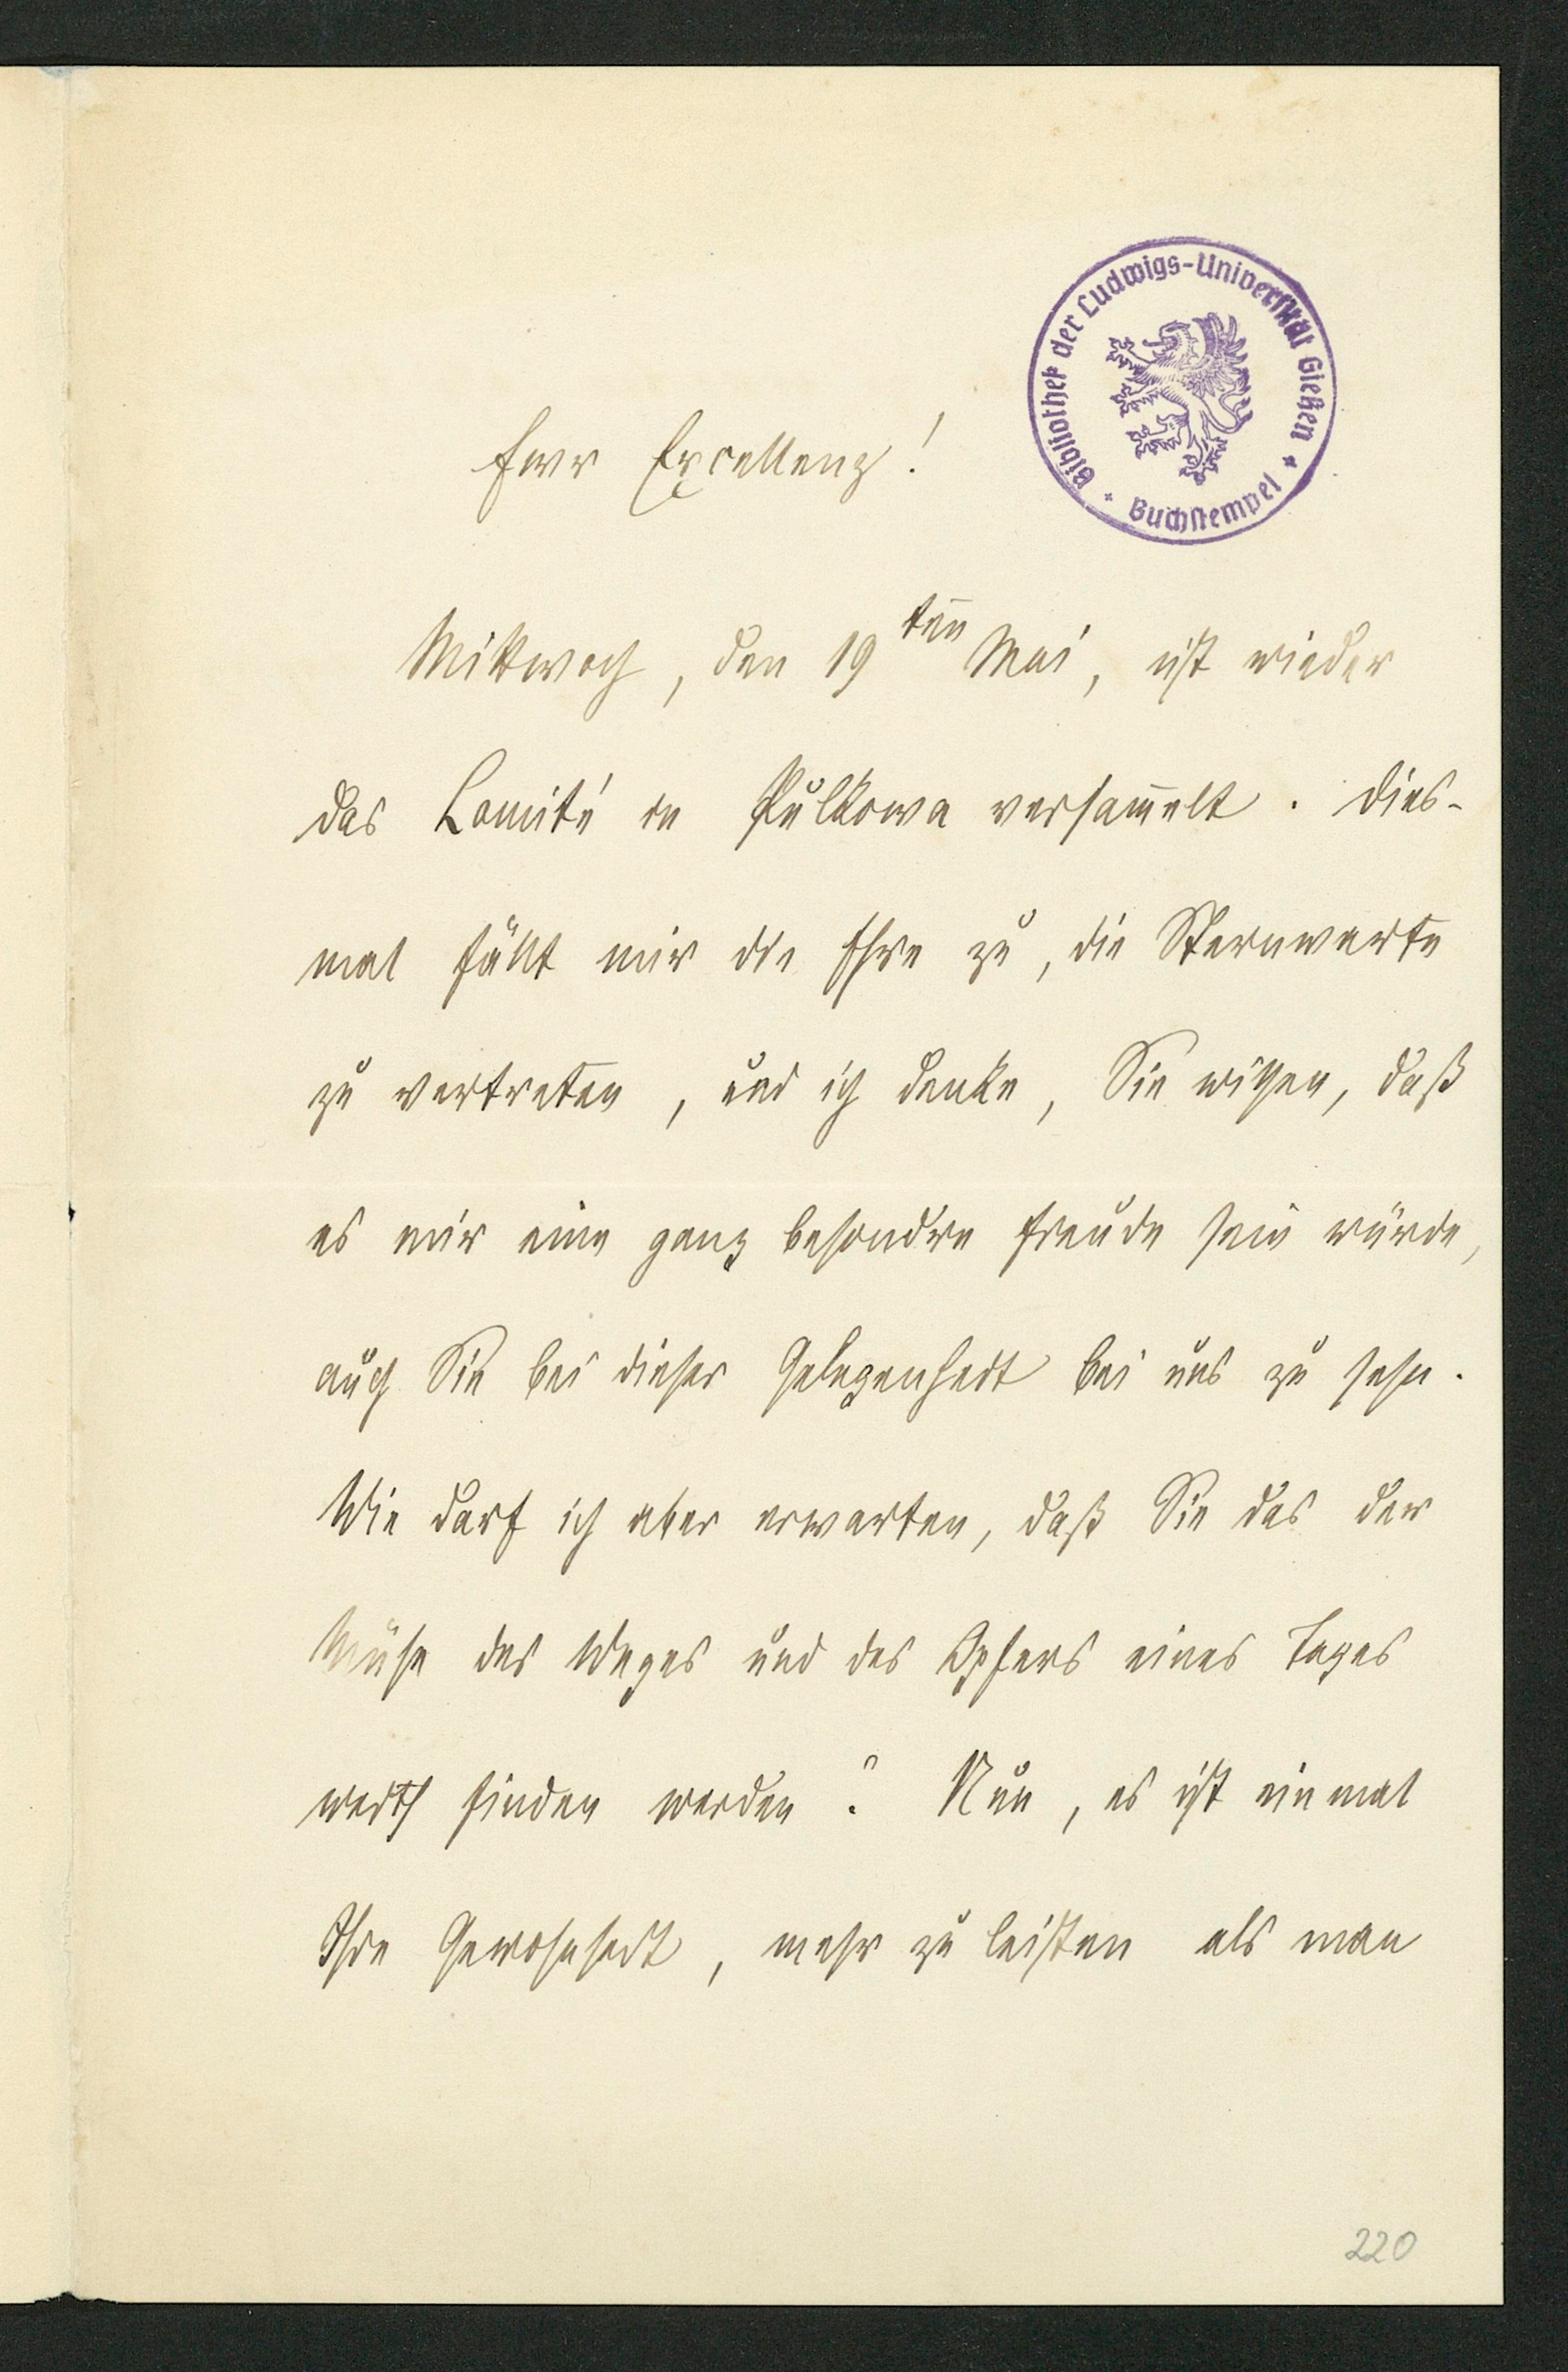 Bibliothek der Ludwigs-Universität Gießen
Buchstempel
Ewr Excellenz!
Mittwoch, den 19ten Mai, ist wieder
das Comité in Pulkowa versam̄elt. Dies-
mal fällt mir die Ehre zu, die Sternwarte
zu vertreten, und ich denke, Sie wissen, daß
es mir eine ganz besondre Freude sein würde,
auch Sie bei dieser Gelegenheit bei uns zu sehn.
Wie darf ich aber erwarten, daß Sie das der
Mühe des Weges und des Opfers eines Tages
werth finden werden? Nun, es ist einmal
Ihre Gewohnheit, mehr zu leisten als man
220